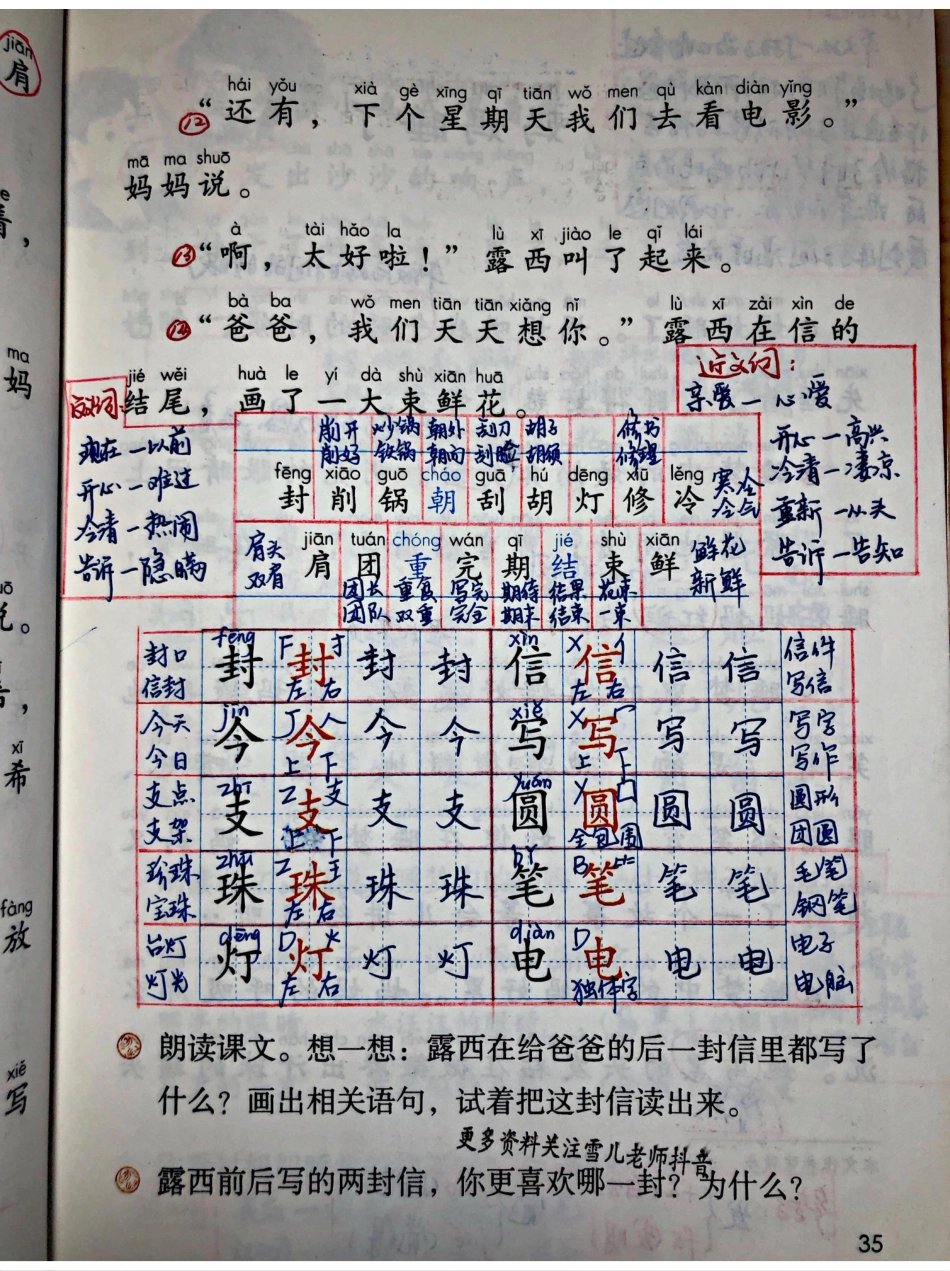 jiān
肩
hái yǒu xià gè xīng qī tiān wǒ men qù kàn diàn yǐng
⑫“还有，下个星期天我们去看电影。”
mā ma shuō
妈妈说。
à tài hǎo la lù xī jiào le qǐ lái
⑬“啊，太好啦！”露西叫了起来。
bà ba wǒ men tiān tiān xiǎng nǐ lù xī zài xìn de
⑭“爸爸，我们天天想你。”露西在信的
jié wěi huà le yí dà shù xiān huā
结尾，画了一大束鲜花。
反义词：
现在—以前
开心—难过
冷清—热闹
告诉—隐瞒
近义词：
亲爱—心爱
开心—高兴
冷清—凄凉
重新—从头
告诉—告知
削开 炒锅 朝外 刮刀 胡子 修书
削好 铁锅 朝向 刮脸 胡须 修理
fēng xiāo guō cháo guā hú dēng xiū lěng
封 削 锅 朝 刮 胡 灯 修 冷
寒冷
冷气
jiān tuán chóng wán qī jié shù xiān
肩 团 重 完 期 结 束 鲜
肩头
双肩
鲜花
新鲜
团长 重复 写完 期待 结果 花束
团队 双重 完全 期末 结束 一束
封口 fēng 封 F 封 寸 封 封 xìn 信 X 信 亻 信 信 信件
信封 左 右 左 右 写信
今天 jīn 今 J 今 人 今 今 xiě 写 X 写 冖 写 写 写字
今日 上 下 上 下 写作
支点 zhī 支 Z 支 支 支 支 yuán 圆 Y 圆 囗 圆 圆 圆形
支架 上 下 全包围 团圆
珍珠 zhū 珠 Z 珠 王 珠 珠 bǐ 笔 B 笔 ⺮ 笔 笔 毛笔
宝珠 左 右 钢笔
台灯 dēng 灯 D 灯 火 灯 灯 diàn 电 D 电 电 电 电子
灯光 左 右 独体字 电脑
朗读课文。想一想：露西在给爸爸的后一封信里都写了
什么？画出相关语句，试着把这封信读出来。
更多资料关注雪儿老师抖音
露西前后写的两封信，你更喜欢哪一封？为什么？
35
ma
妈
xī
希
fàng
放
xiě
写